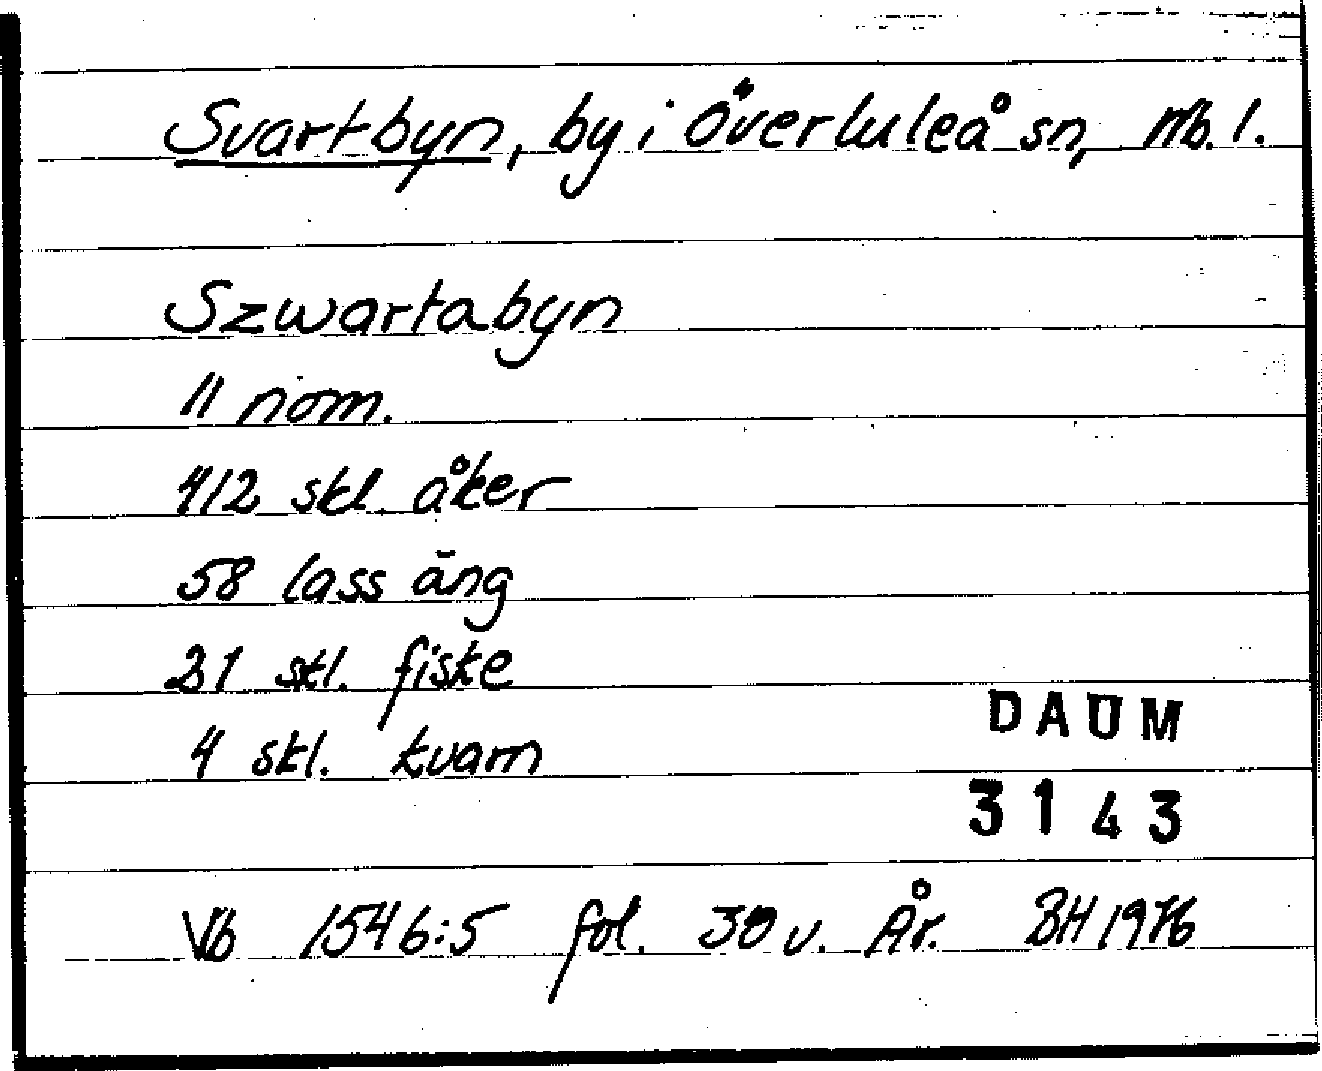 Svartbyn, by i Överluleå sn, Nb. l.
Szwartabyn
11 nom.
412 skl. åker
58 lass äng
21 skl. fiske
4 skl. kvarn
DAUM
3143
Vb 1546:5 fol. 30 v. År. BH 1976